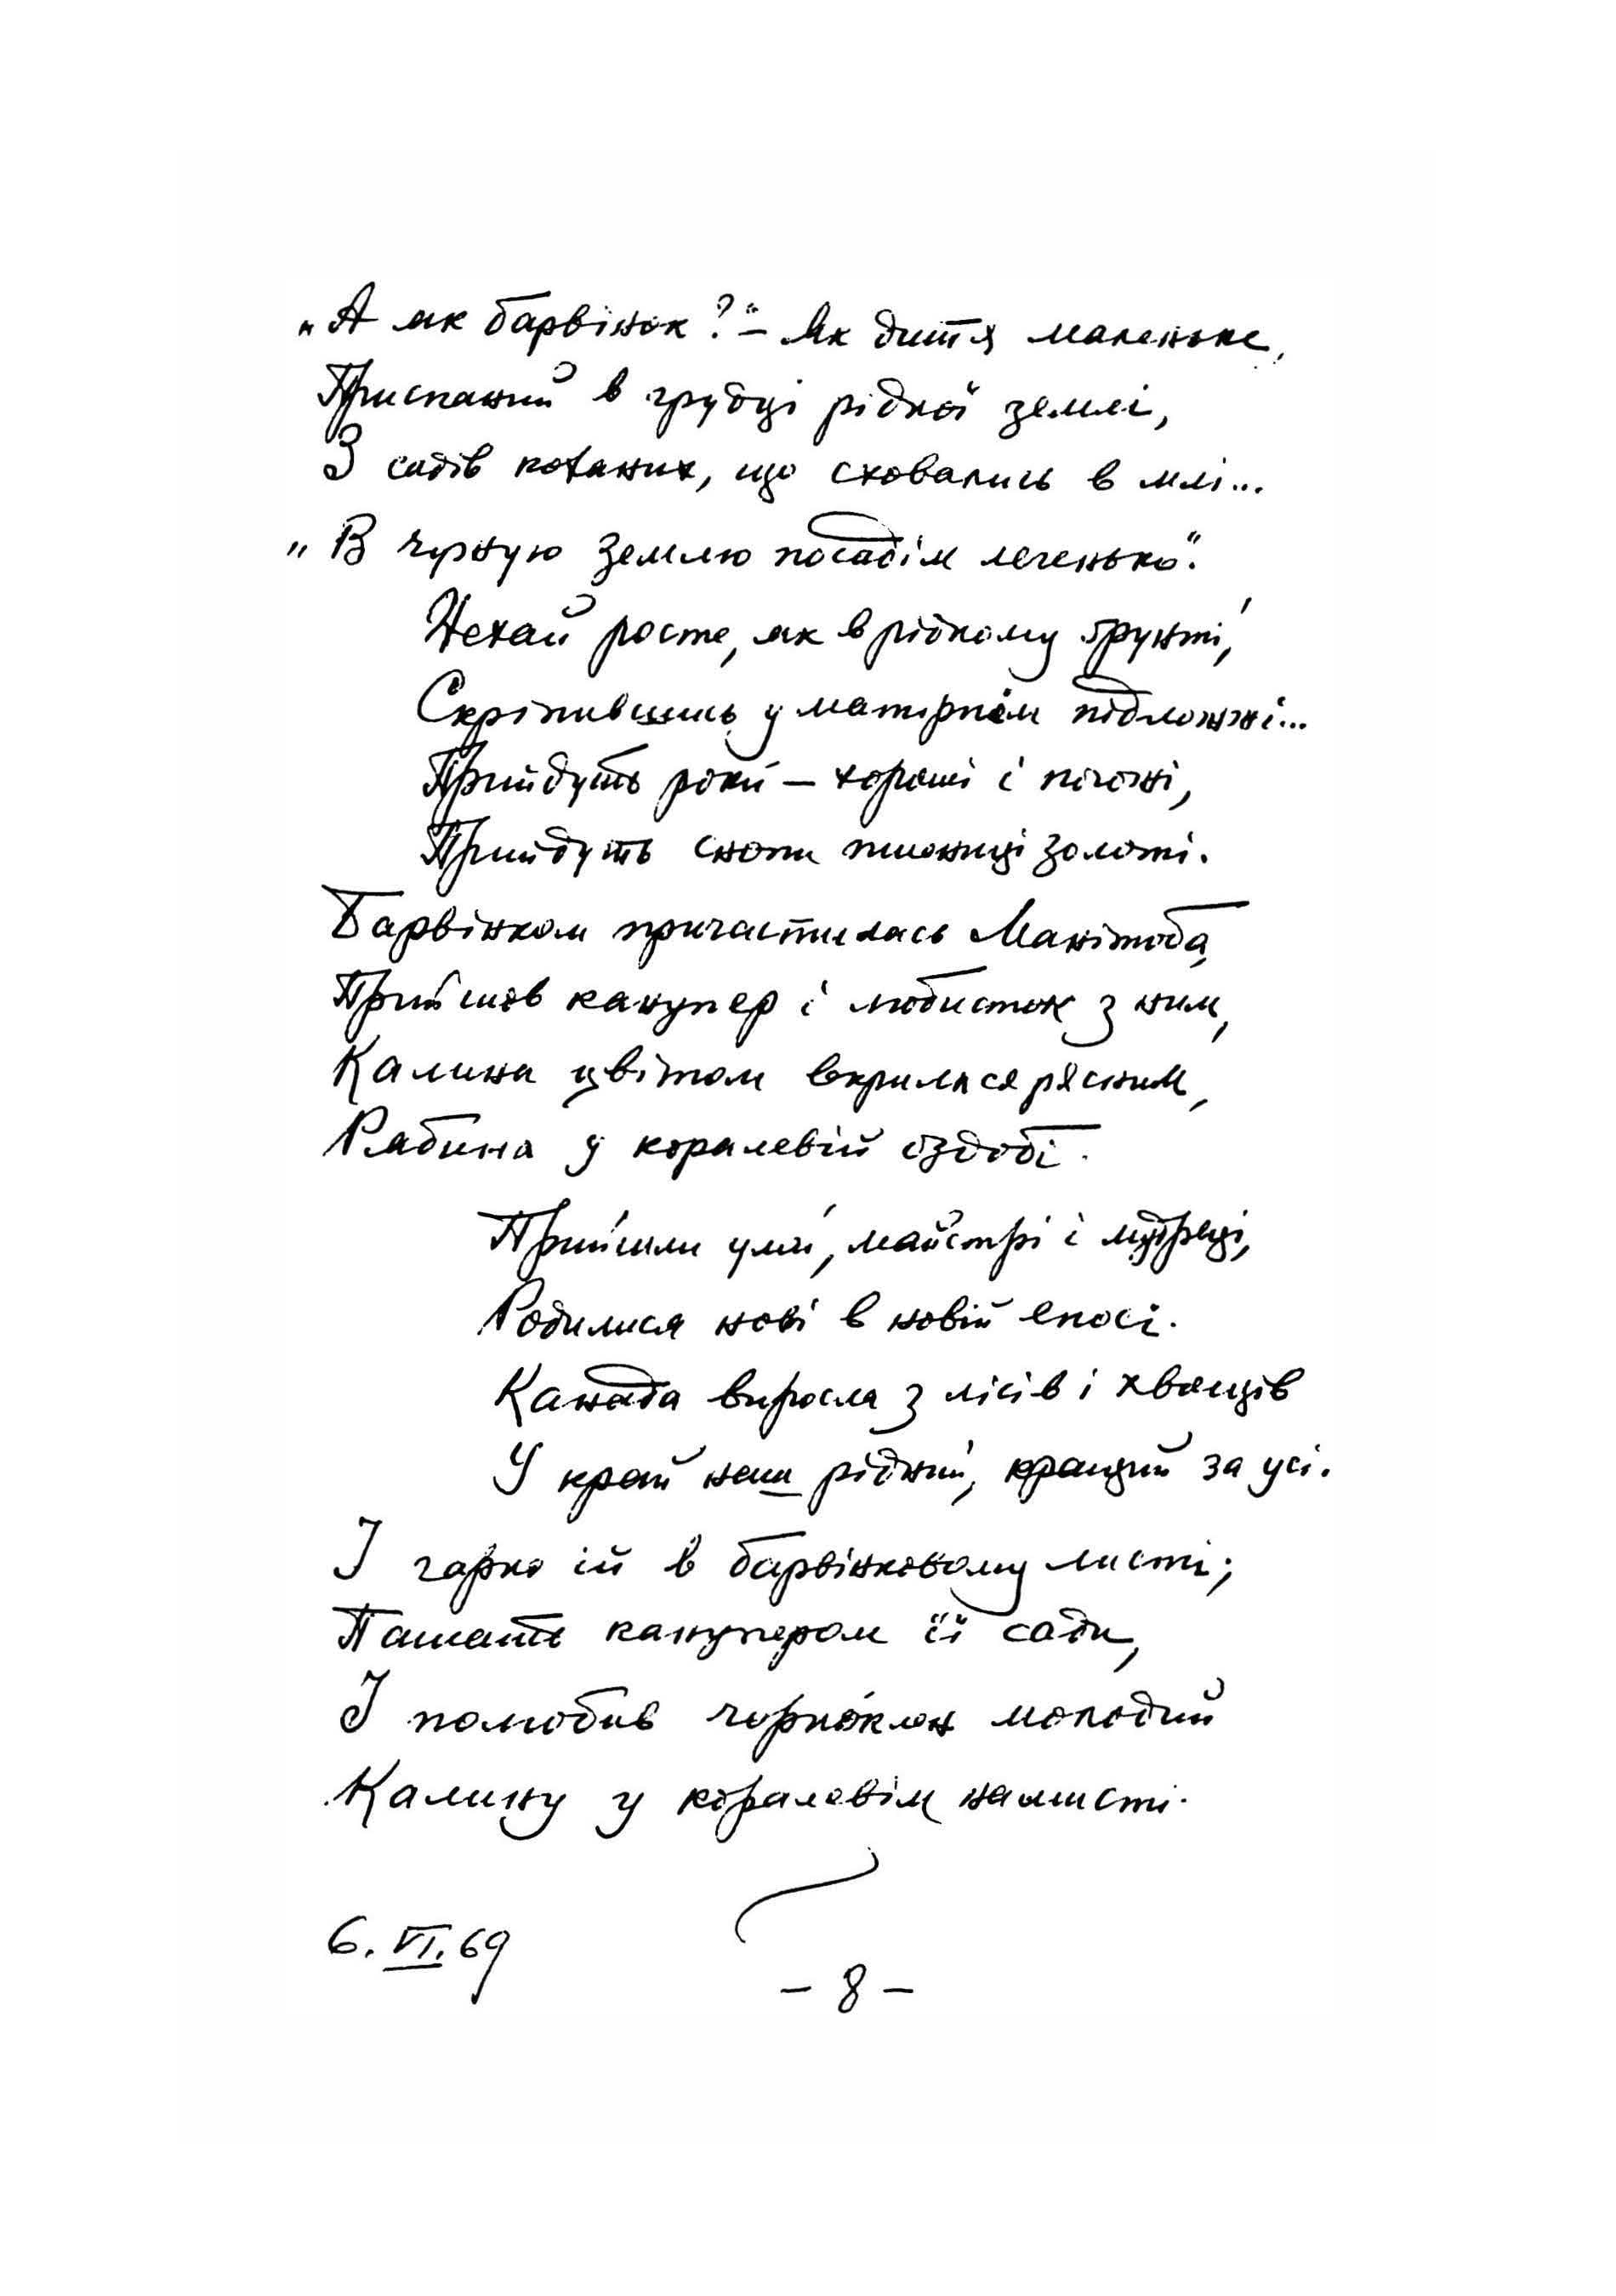 „А як барвінок?“ – Як дитя маленьке,
Приспаний в грудці рідної землі,
З садів коханих, що сховались в млі...
„В чорную землю посадім легенько“.
Нехай росте, як в рідному ґрунті,
Скріпившись у матернім підложжі...
Прийдуть роки – хороші і погожі,
Прийдуть снопи пшениці золоті.
Барвінком причастилась Манітоба,
Прийшов канупер і любисток з ним,
Калина цвітом вкрилася рясним,
Рябина у коралевій оздобі.
Прийшли уми, майстрі і мудреці,
Родилися нові в новій епосі.
Канада виросла з лісів і хвощів
У край наш рідний, кращий за усі.
І гарно їй в барвінковому листі;
Пашать канупером її сади,
І полюбив чорноклен молодий
Калину у коралевім намисті.
6. VI. 69
– 8 –